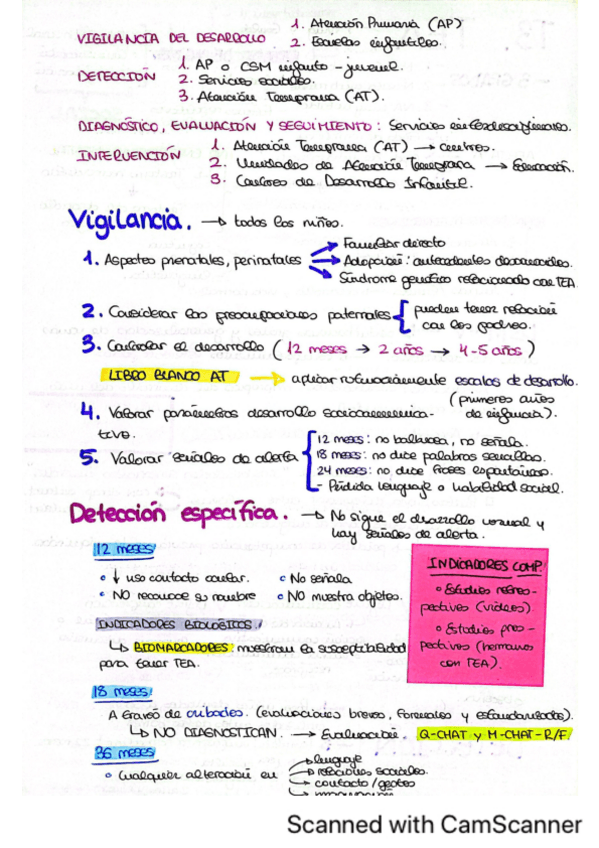 VIGILANCIA DEL DESARROLLO 1. Atención Primaria (AP)
2. Escuelas infantiles.
DETECCIÓN 1. AP o CSM infanto-juvenil.
2. Servicios sociales.
3. Atención Temprana (AT).
DIAGNÓSTICO, EVALUACIÓN Y SEGUIMIENTO: Servicios interdisciplinares.
INTERVENCIÓN 1. Atención Temprana (AT) → centros.
2. Unidades de Atención Temprana → Formación.
3. Centros de Desarrollo Infantil.
Vigilancia. → todos los niños.
1. Aspectos prenatales, perinatales → Familiar directo
→ Adopción: antecedentes desconocidos.
→ Síndrome genético relacionado con TEA.
2. Considerar las preocupaciones paternales { pueden tener relación
con los padres.
3. Controlar el desarrollo (12 meses → 2 años → 4-5 años)
LIBRO BLANCO AT → aplicar rutinariamente escalas de desarrollo.
(primeros años
de infancia).
4. Valorar parámetros desarrollo sociocomunica-
tivo.
5. Valorar señales de alerta { 12 meses: no balbucea, no señala.
18 meses: no dice palabras sencillas.
24 meses: no dice frases espontáneas.
- Pérdida lenguaje o habilidad social.
Detección específica. → No sigue el desarrollo normal y
hay señales de alerta.
12 meses
• ↓ uso contacto ocular. • No señala
• NO reconoce su nombre • NO muestra objetos.
INDICADORES BIOLÓGICOS!
↳ BIOMARCADORES: muestran la susceptibilidad
para tener TEA.
INDICADORES COMP.
• Estudios retros-
pectivos (vídeos).
• Estudios pros-
pectivos (hermanos
con TEA).
18 meses:
A través de cribados. (evaluaciones breves, formales y estandarizadas).
↳ NO DIAGNOSTICAN. → Evaluación. Q-CHAT y M-CHAT-R/F.
36 meses
• Cualquier alteración en → lenguaje
→ relaciones sociales.
→ contacto/gestos
Scanned with CamScanner